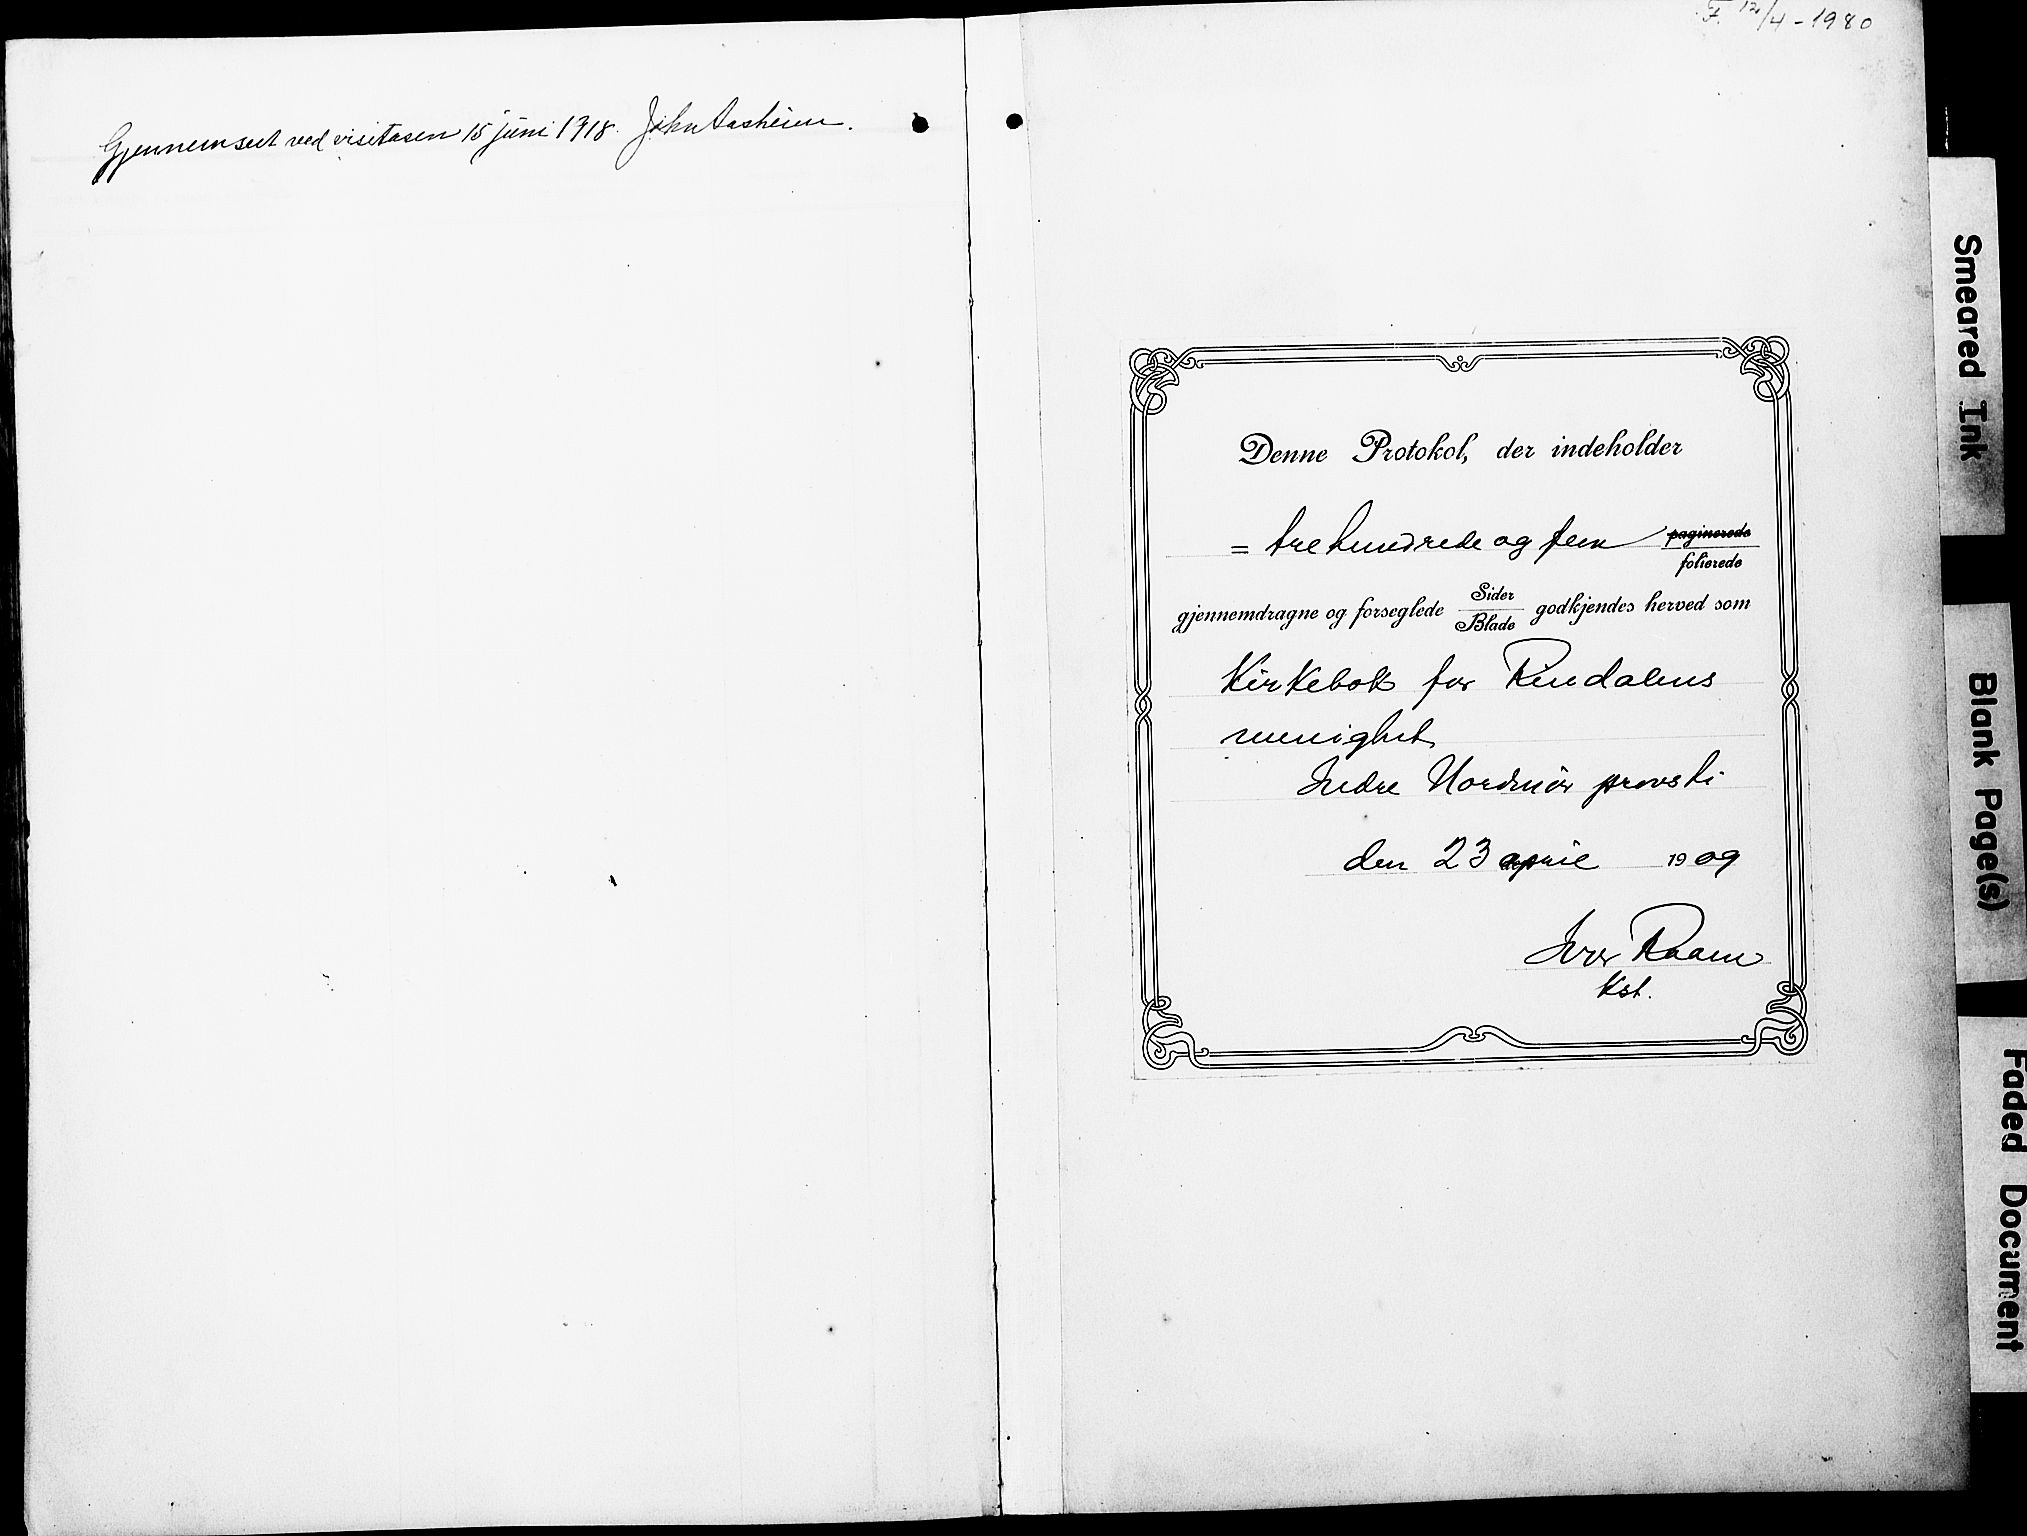 Gjennemseet ved visitasen 15 juni 1918. John Aasheim.
F. 12/4 - 1980
Denne Protokol, der indeholder
= tre hundrede og fem paginerede
folierede
gjennemdragne og forseglede Sider
Blade godkjendes herved som
Kirkebok for Rindalens
menighet
Indre Nordmör provsti
den 23 april 1909
Iver Raam
Kst.
Smeared Ink
Blank Page(s)
Faded Document